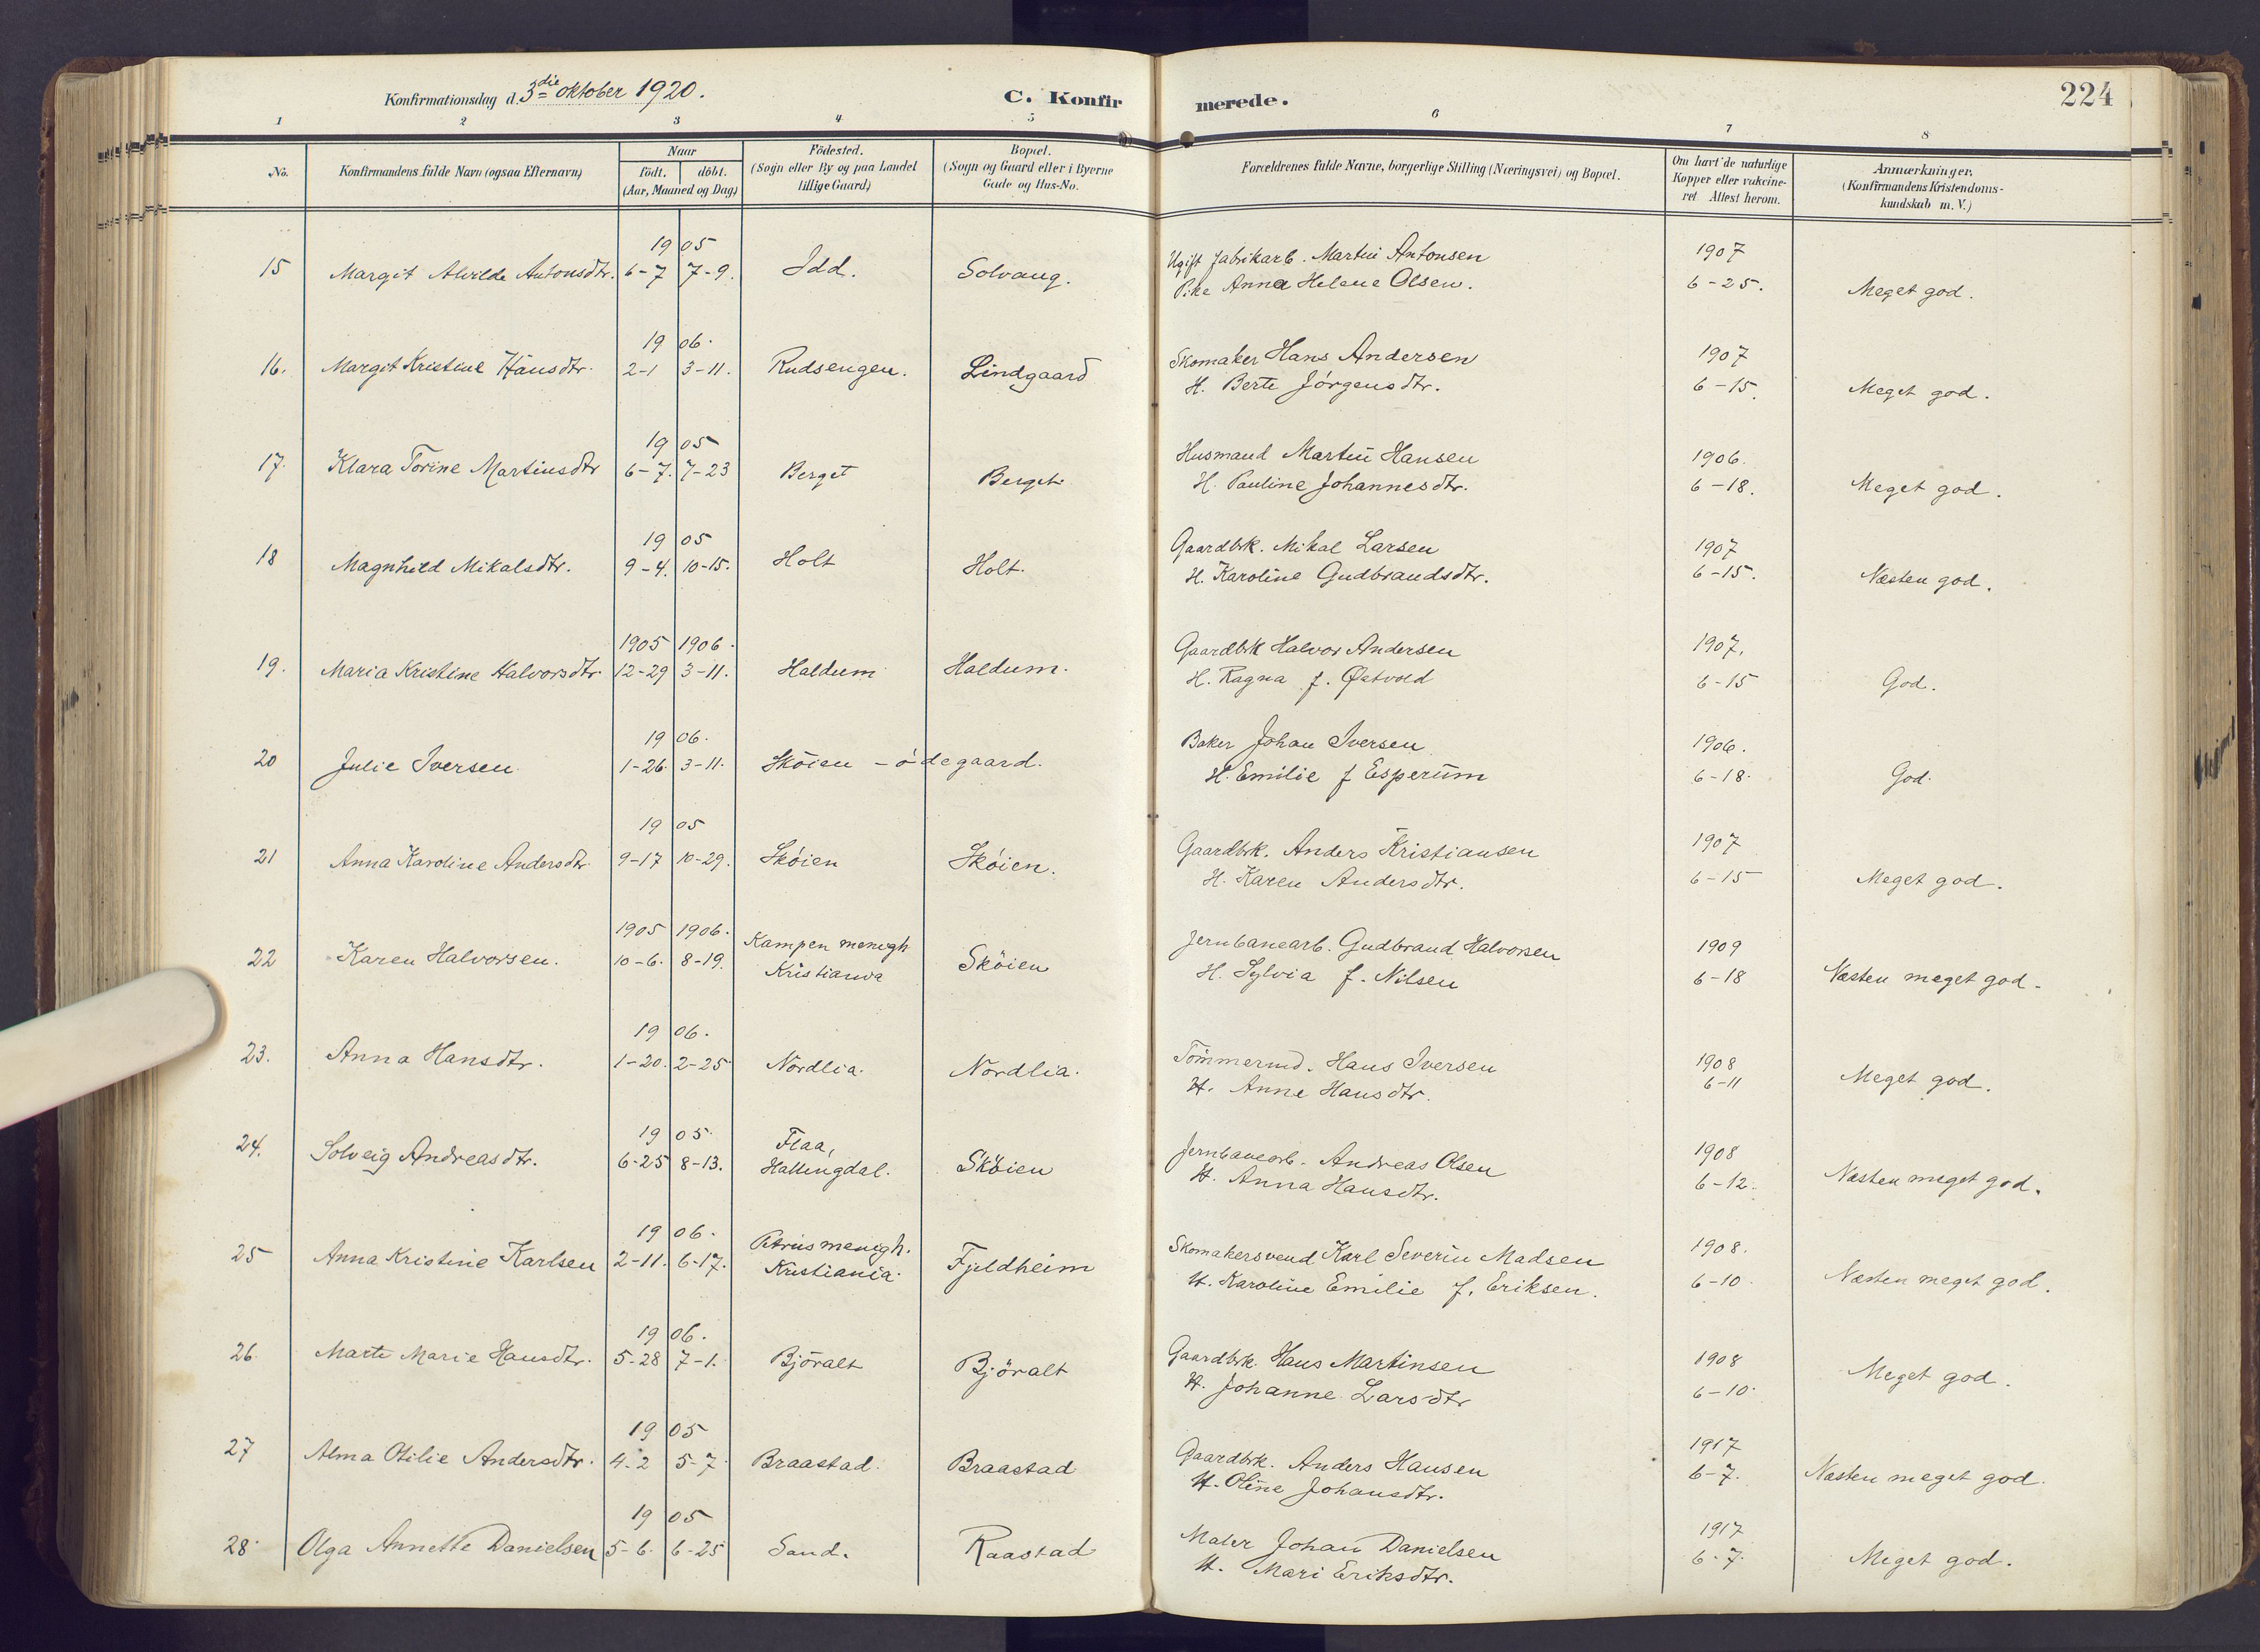 Konfirmationsdag d. 3die oktober 1920.
C. Konfirmerede.
224
1 2 3 4 5 6 7 8
No.
Konfirmandens fulde Navn (ogsaa Efternavn)
Naar
födt. döbt.
(Aar, Maaned og Dag)
Födested.
(Sogn eller By og paa Landet
tillige Gaard)
Bopæl.
(Sogn og Gaard eller i Byerne
Gade og Hus-No.
Forældrenes fulde Navne, borgerlige Stilling (Næringsvei) og Bopæl.
Om havt de naturlige
Kopper eller vakcine-
ret Attest herom.
Anmærkninger.
(Konfirmandens Kristendoms-
kundskab m. V.)
1905
15 Margit Alvilde Antonsdtr. 6-7 7-9. Idd. Solvang.
Ugift fabrikarb. Martin Antonsen 1907
Pike Anna Helene Olsen. 6-25. Meget god.
1906.
16. Margit Kristine Hansdtr. 2-1 3-11. Rudsengen. Lindgaard
Skomaker Hans Andersen 1907
H. Berte Jörgensdtr. 6-15. Meget god.
1905
17. Klara Torine Martinsdtr 6-7. 7-23 Berget Berget.
Husmand Martin Hansen 1906.
H. Pauline Johannesdtr. 6-18. Meget god.
1905
18 Magnhild Mikalsdtr. 9-4. 10-15. Holt Holt.
Gaardbrk. Mikal Larsen 1907
H. Karoline Gudbrandsdtr. 6-15. Næsten god.
1905 1906.
19. Maria Kristine Halvorsdtr. 12-29 3-11. Haldum Haldum.
Gaardbrk Halvor Andersen 1907.
H. Ragna f. Østvold 6-15 God.
1906.
20 Julie Iversen 1-26. 3-11. Sköien - ödegaard.
Baker Johan Iversen 1906.
H. Emilie f Esperum 6-18. God.
1905
21 Anna Karoline Andersdtr. 9-17 10-29. Sköien Sköien.
Gaardbrk. Anders Kristiansen 1907
H. Karen Andersdtr. 6-15 Meget god.
1905 1906.
22 Karen Halvorsen. 10-6. 8-19. Kampen menigh Kristiania Sköien
Jernbanearb. Gudbrand Halvorsen 1909
H. Sylvia f. Nilsen 6-18 Næsten meget god.
1906.
23. Anna Hansdtr. 1-20. 2-25. Nordlia. Nordlia.
Tömmermd. Hans Iversen 1908
H. Anne Hansdtr. 6-11 Meget god.
1905.
24. Solveig Andreasdtr. 6-25 8-13. Flaa, Hallingdal. Sköien
Jernbanearb. Andreas Olsen 1908
H. Anna Hansdtr. 6-12. Næsten meget god.
1906.
25 Anna Kristine Karlsen 2-11. 6-17. Petrus menigh. Kristiania. Fjeldheim
Skomakersvend Karl Severin Madsen 1908.
H. Karoline Emilie f. Eriksen. 6-10. Næsten meget god.
1906.
26. Marte Marie Hansdtr. 5-28 7-1. Björalt Björalt
Gaardbrk. Hans Martinsen 1908
H. Johanne Larsdtr 6-10. Meget god.
1905
27 Alma Otilie Andersdtr. 4-2 5-7. Braastad. Braastad
Gaardbrk. Anders Hansen 1917
H. Oline Johansdtr. 6-7. Næsten meget god.
1905
28. Olga Annette Danielsen 5-6. 6-25 Sand. Raastad
Maler Johan Danielsen 1917
H. Mari Eriksdtr. 6-7. Meget god.